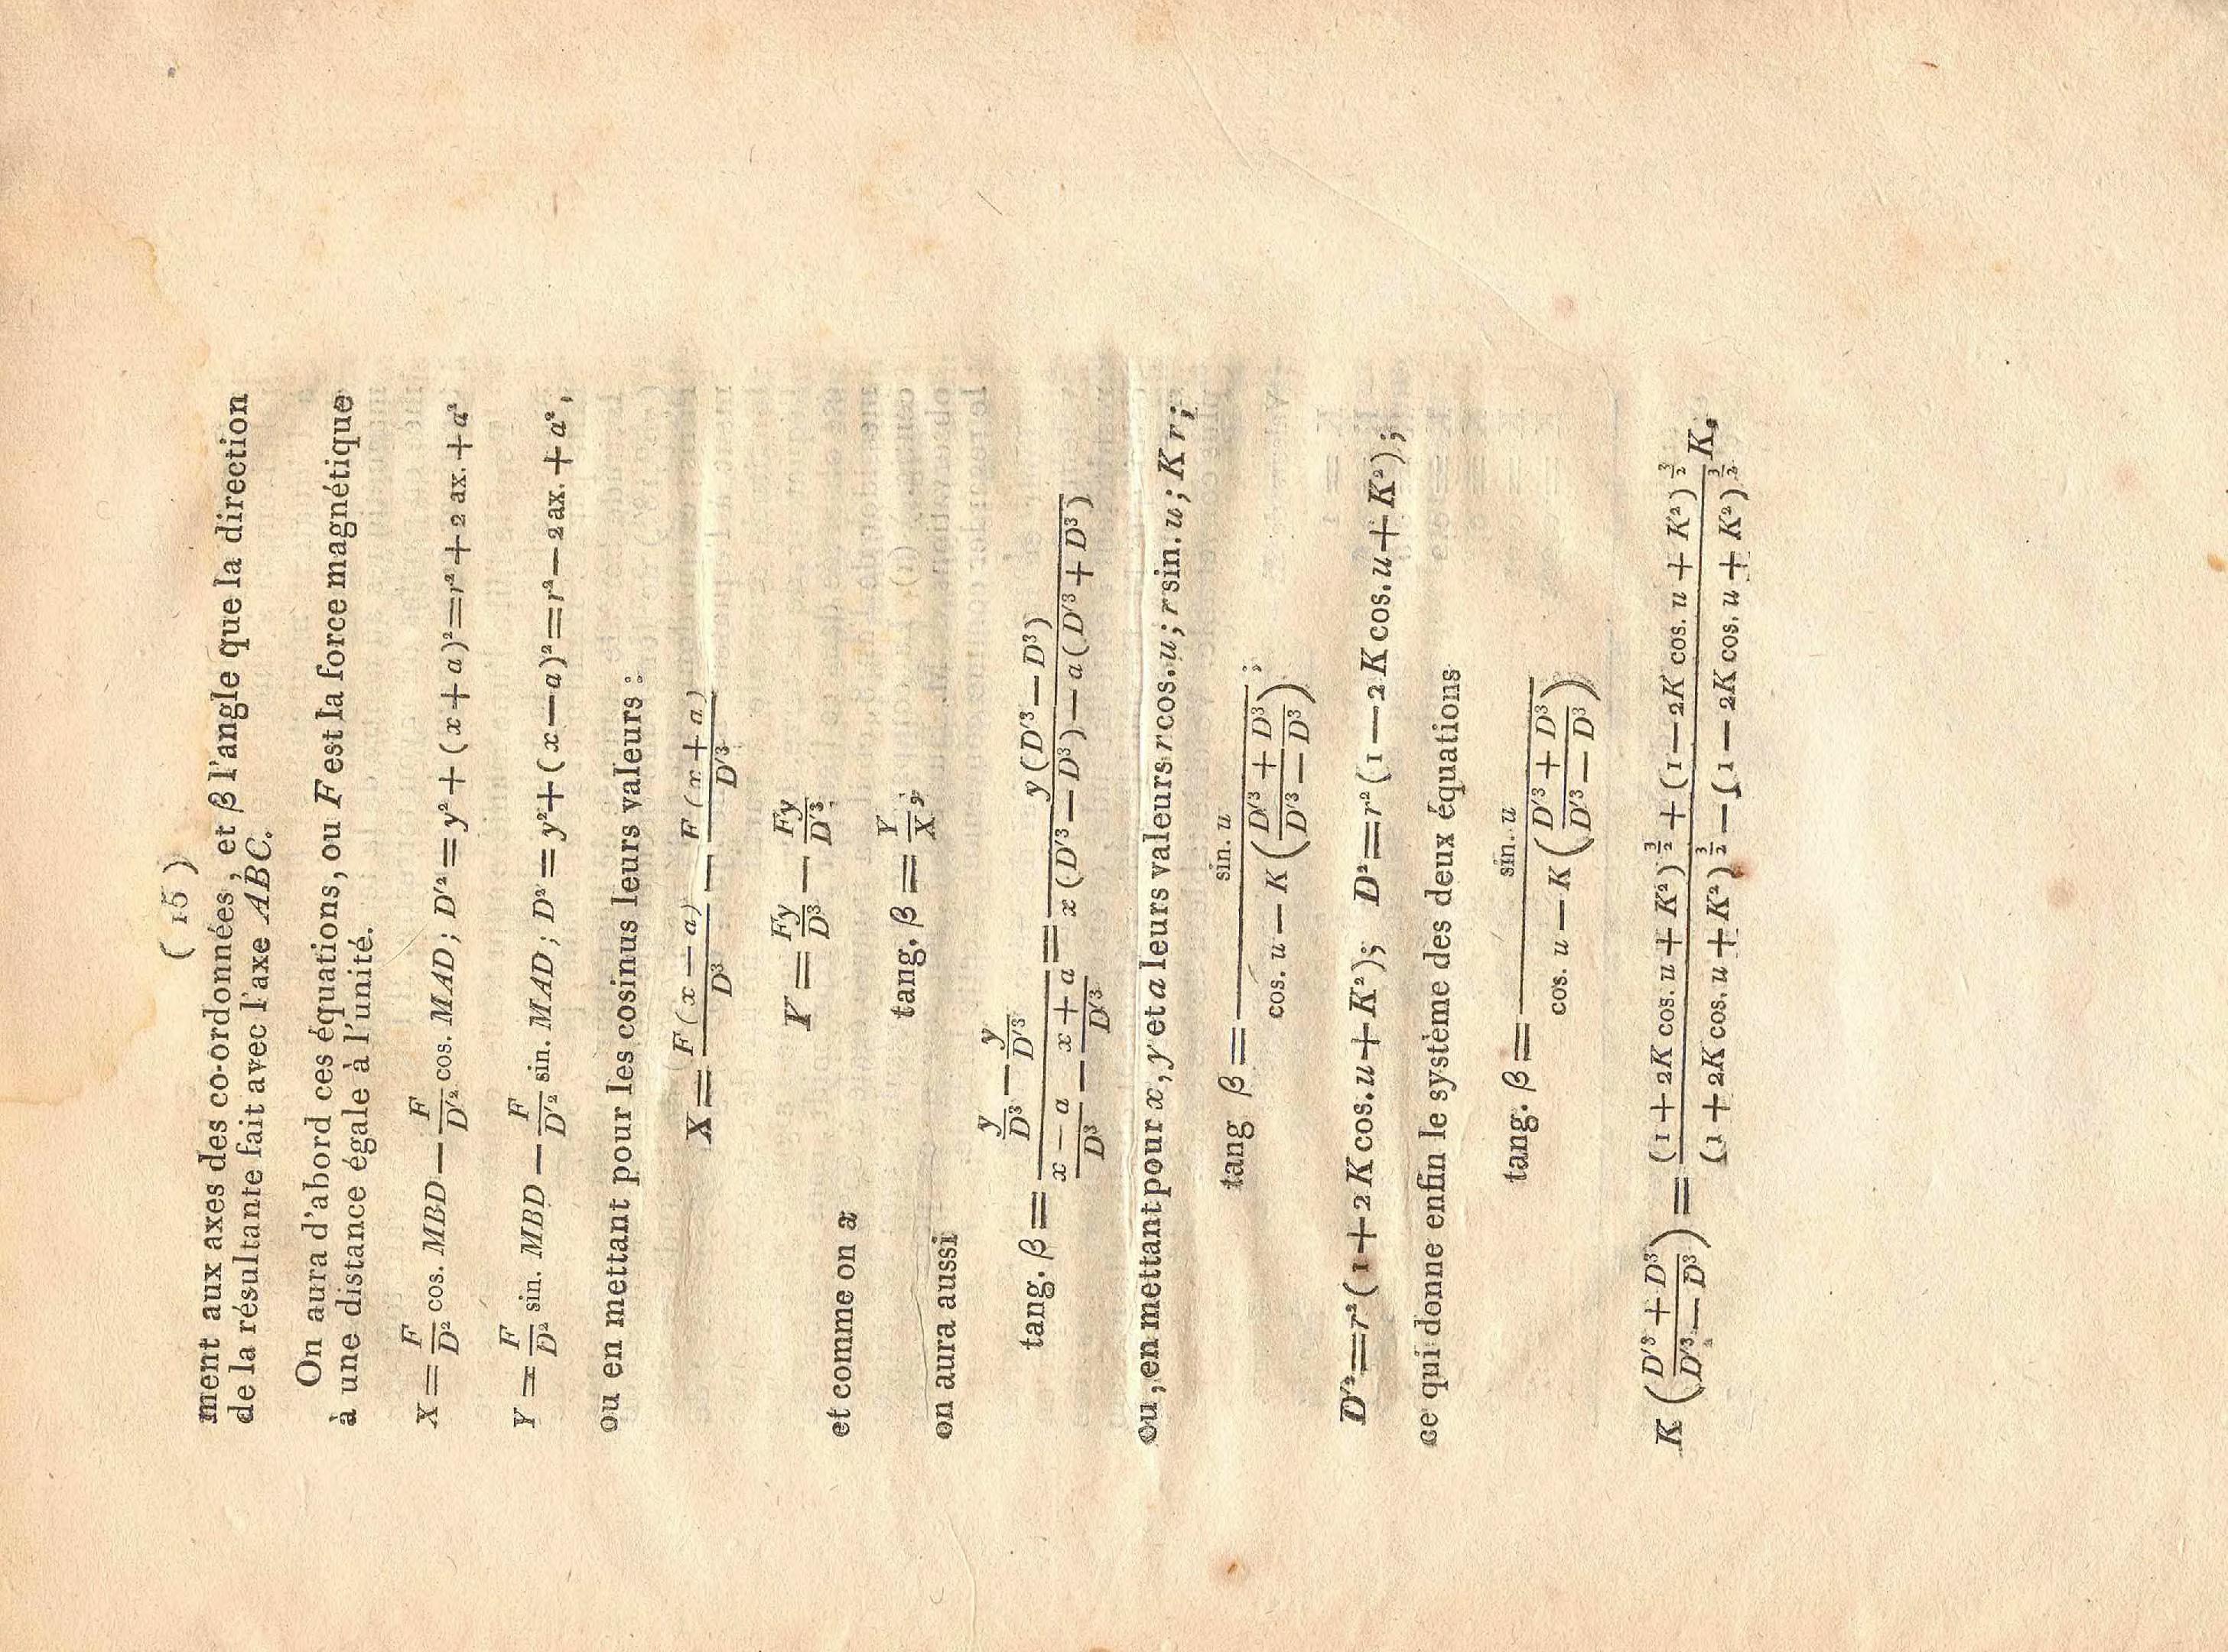 ( 15 )
ment aux axes des co-ordonnées, et β l'angle que la direction
de la résultante fait avec l'axe ABC.
On aura d'abord ces équations, ou F est la force magnétique
à une distance égale à l'unité.
X = F/D² cos. MBD — F/D'² cos. MAD; D'² = y² + (x + a)² = r² + 2 ax. + a²
Y = F/D² sin. MBD — F/D'² sin. MAD; D² = y² + (x — a)² = r² — 2 ax. + a²,
ou en mettant pour les cosinus leurs valeurs :
X = F (x — a)/D³ — F (x + a)/D'³
Y = Fy/D³ — Fy/D'³
et comme on a
tang. β = Y/X,
on aura aussi
tang. β = (y/D³ — y/D'³)/((x — a)/D³ — (x + a)/D'³) = y (D'³ — D³)/(x (D'³ — D³) — a (D'³ + D³))
ou, en mettant pour x, y et a leurs valeurs r cos. u; r sin. u; K r;
tang β = sin. u/(cos. u — K ((D'³ + D³)/(D'³ — D³)));
D'² = r² (1 + 2 K cos. u + K²); D² = r² (1 — 2 K cos. u + K²);
ce qui donne enfin le système des deux équations
tang. β = sin. u/(cos. u — K ((D'³ + D³)/(D'³ — D³)))
K ((D'³ + D³)/(D'³ — D³)) = ((1 + 2K cos. u + K²)^(3/2) + (1 — 2K cos. u + K²)^(3/2))/((1 + 2K cos. u + K²)^(3/2) — (1 — 2K cos. u + K²)^(3/2)) K.